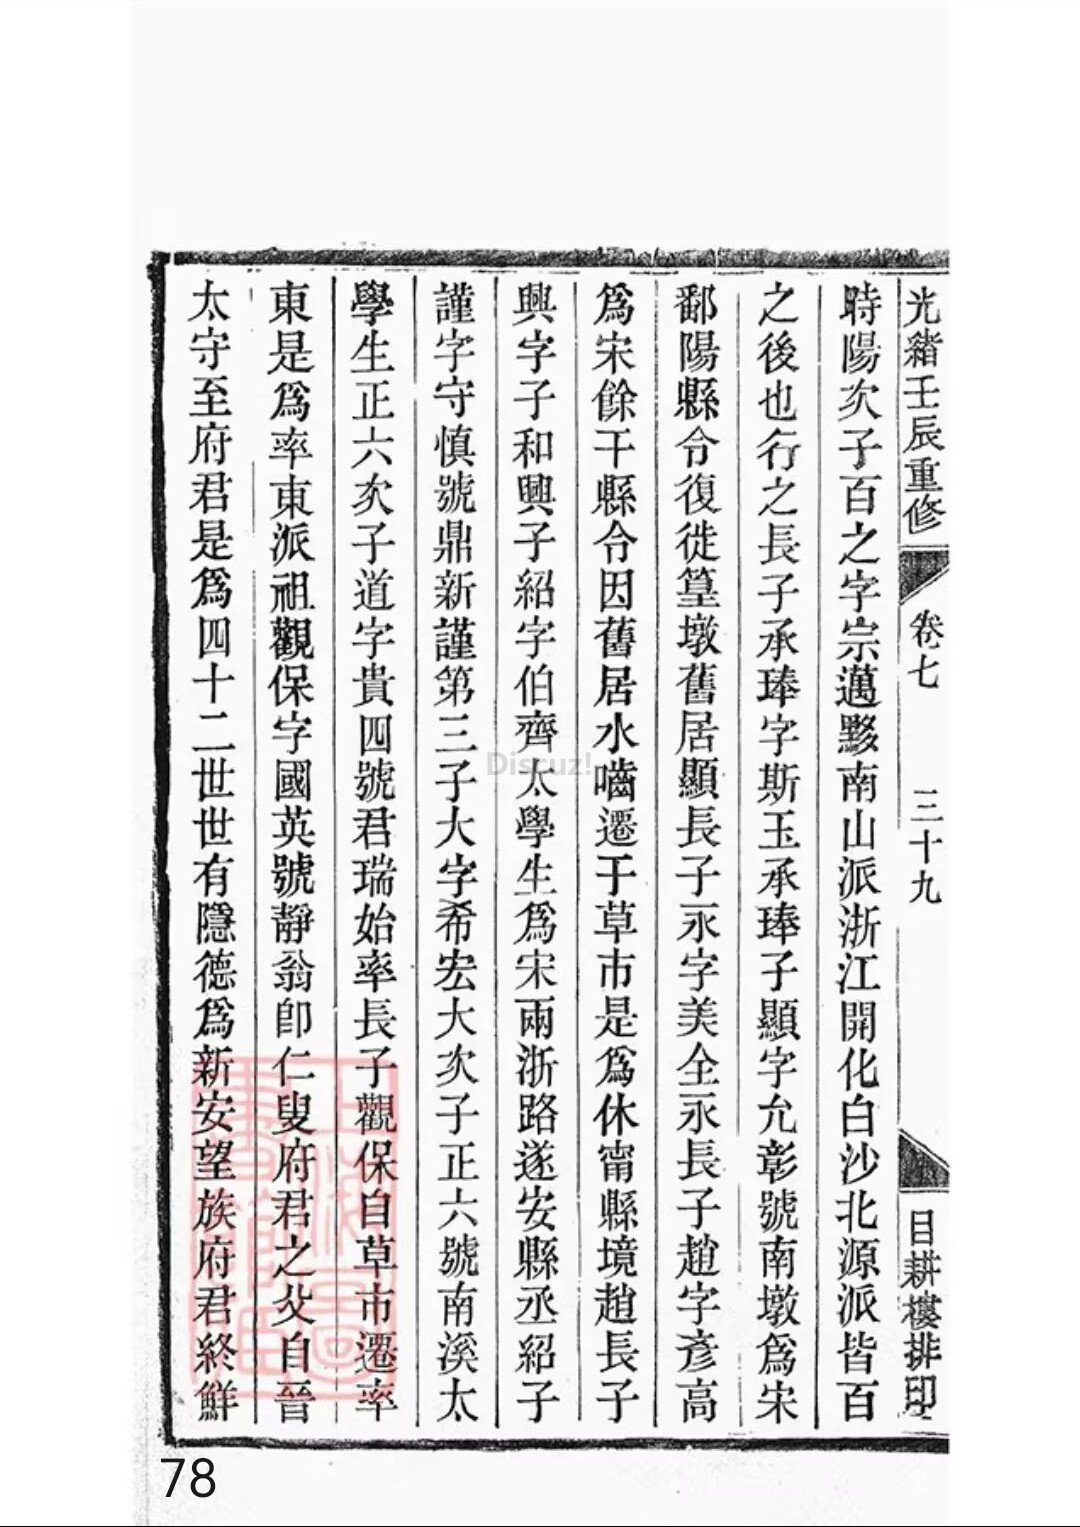 光緒壬辰重修 卷七 三十九 目耕樓排印
時陽次子百之字宗邁黟南山派浙江開化白沙北源派皆百
之後也行之長子承琫字斯玉承琫子顯字允彰號南墩爲宋
鄱陽縣令復徙篁墩舊居顯長子永字美全永長子趙字彥高
爲宋餘干縣令因舊居水嚙遷于草市是爲休甯縣境趙長子
興字子和興子紹字伯齊太學生爲宋兩浙路遂安縣丞紹子
謹字守慎號鼎新謹第三子大字希宏大次子正六號南溪太
學生正六次子道字貴四號君瑞始率長子觀保自草市遷率
東是爲率東派祖觀保字國英號靜翁卽仁叟府君之父自晉
太守至府君是爲四十二世世有隱德爲新安望族府君終鮮
上海圖書館藏
Discuz!
78